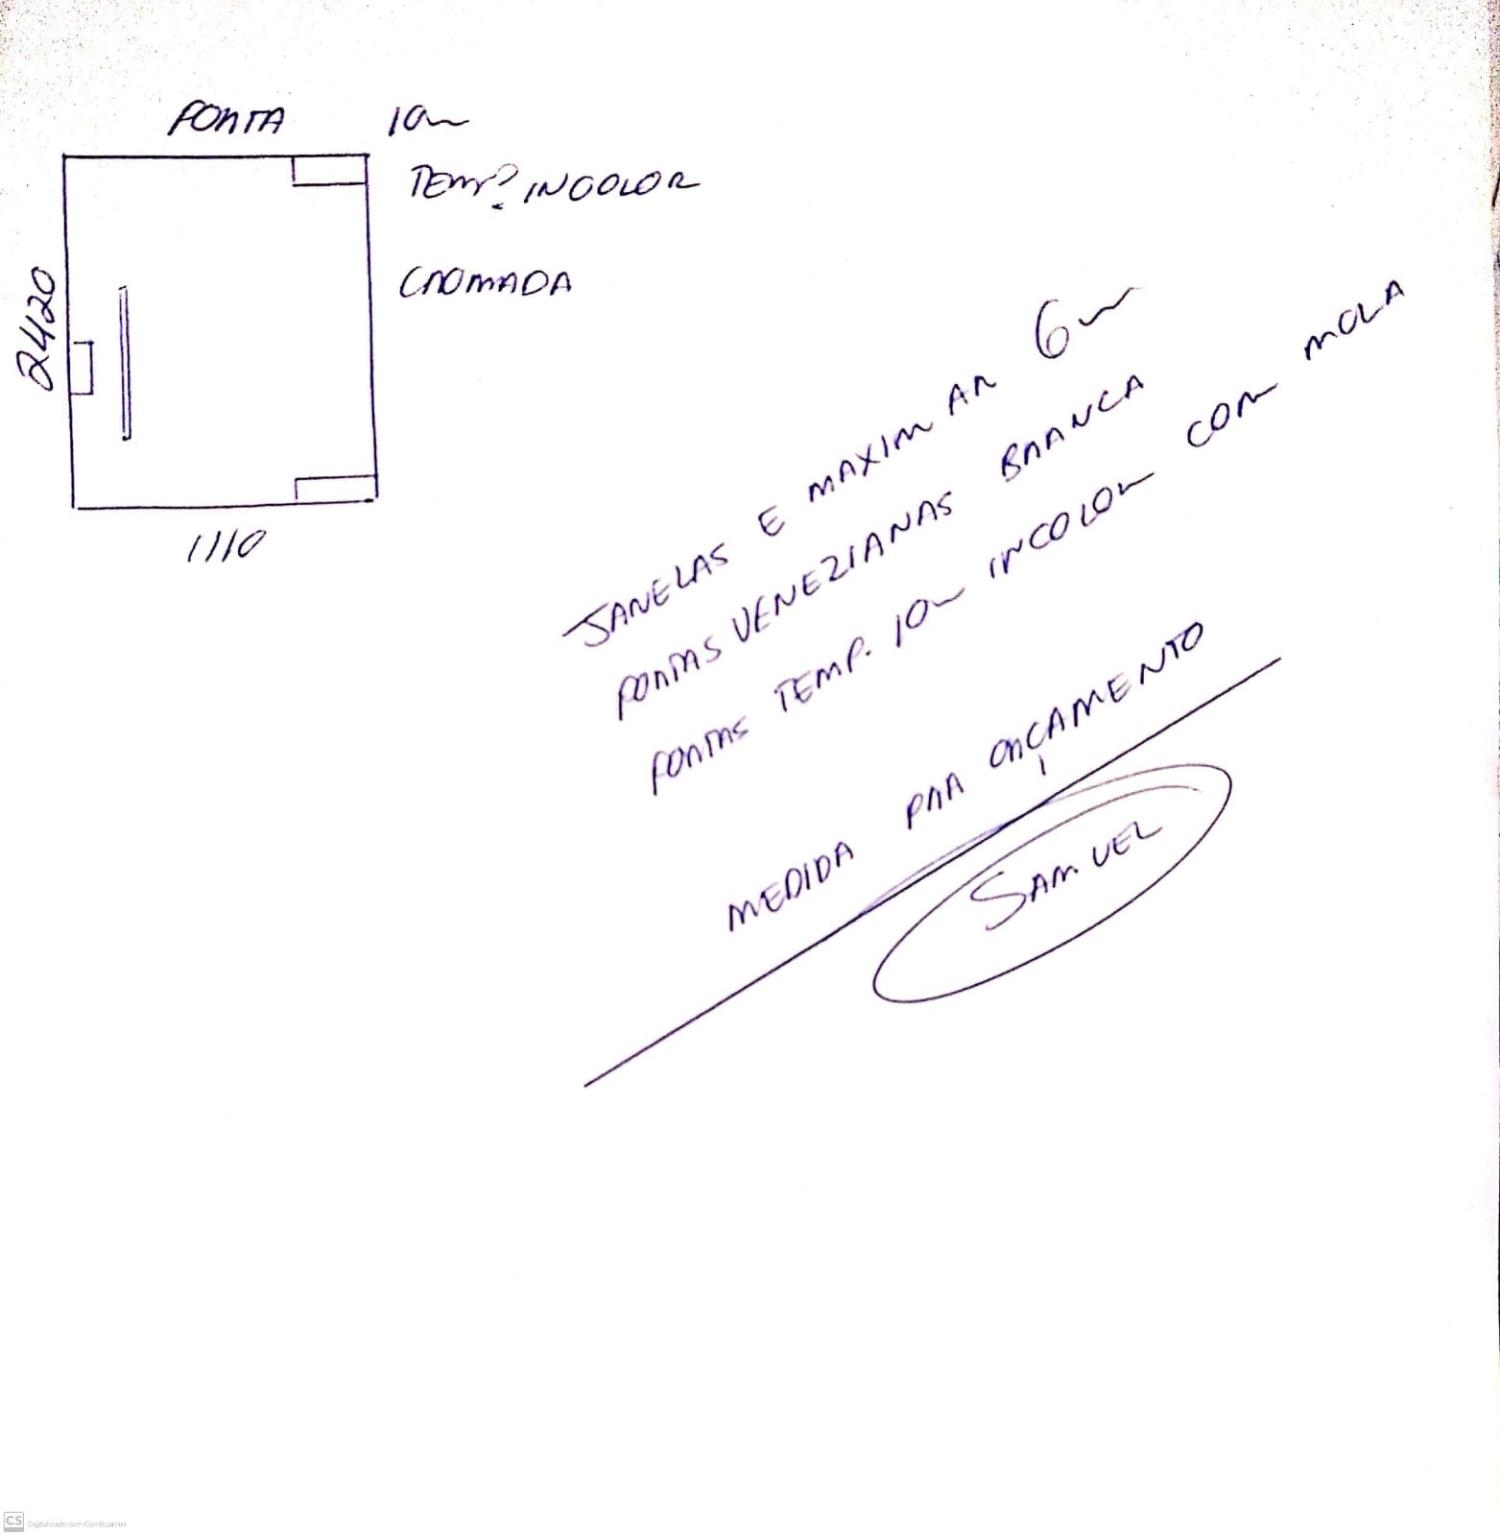 PORTA 10m
TEMP? INCOLOR
CROMADA
2420
1110
JANELAS E MAXIM AR 6m
PORTAS VENEZIANAS BRANCA
PORTAS TEMP. 10m INCOLOR COM MOLA
MEDIDA PRA ORÇAMENTO
SAMUEL
CS Digitalizado com CamScanner